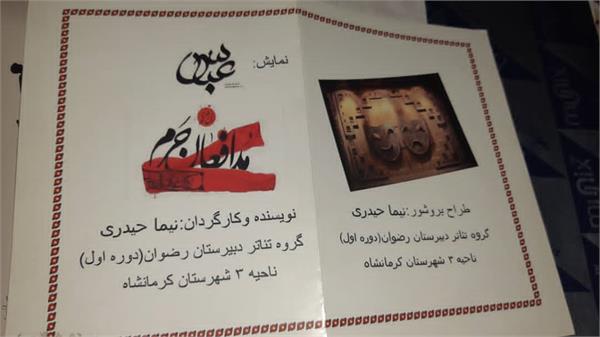 نمایش:
عباس
مدافعان حرم
نویسنده وکارگردان:نیما حیدری
گروه تئاتر دبیرستان رضوان(دوره اول)
ناحیه ۳ شهرستان کرمانشاه
طراح بروشور:نیما حیدری
گروه تئاتر دبیرستان رضوان (دوره اول)
ناحیه ۳ شهرستان کرمانشاه